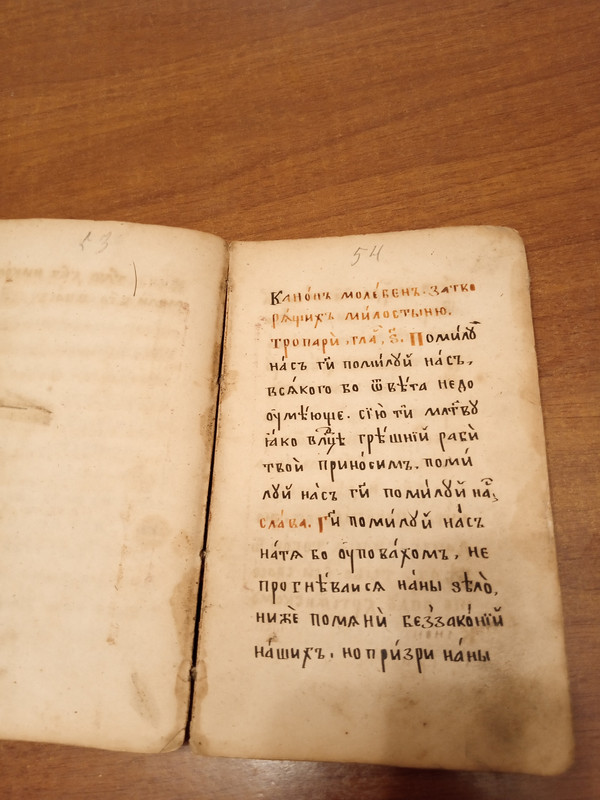 53
54
Кано́нъ моле́бенъ. затво
ря́щихъ ми́лостыню.
тропарѝ, гла҇, ѕ҃. Поми́луй
на́съ гд҃и поми́луй на́съ,
вся́кого бо ѿвѣ́та недо
оумѣ́юще. сїю̀ ти мл҃тву
ꙗ́ко влⷣцѣ грѣ́шнїй рабѝ
твоѝ прино́симъ. поми́
луй на́съ гд҃и поми́луй на́съ
сла́ва. Гд҃и поми́луй на́съ
на́тѧ бо оупова́хомъ, не
прогнѣ́ваися на́ны ѕѣлѡ̀,
нижѐ помянѝ беззако́нїй
на́шихъ. но при́зри на́ны